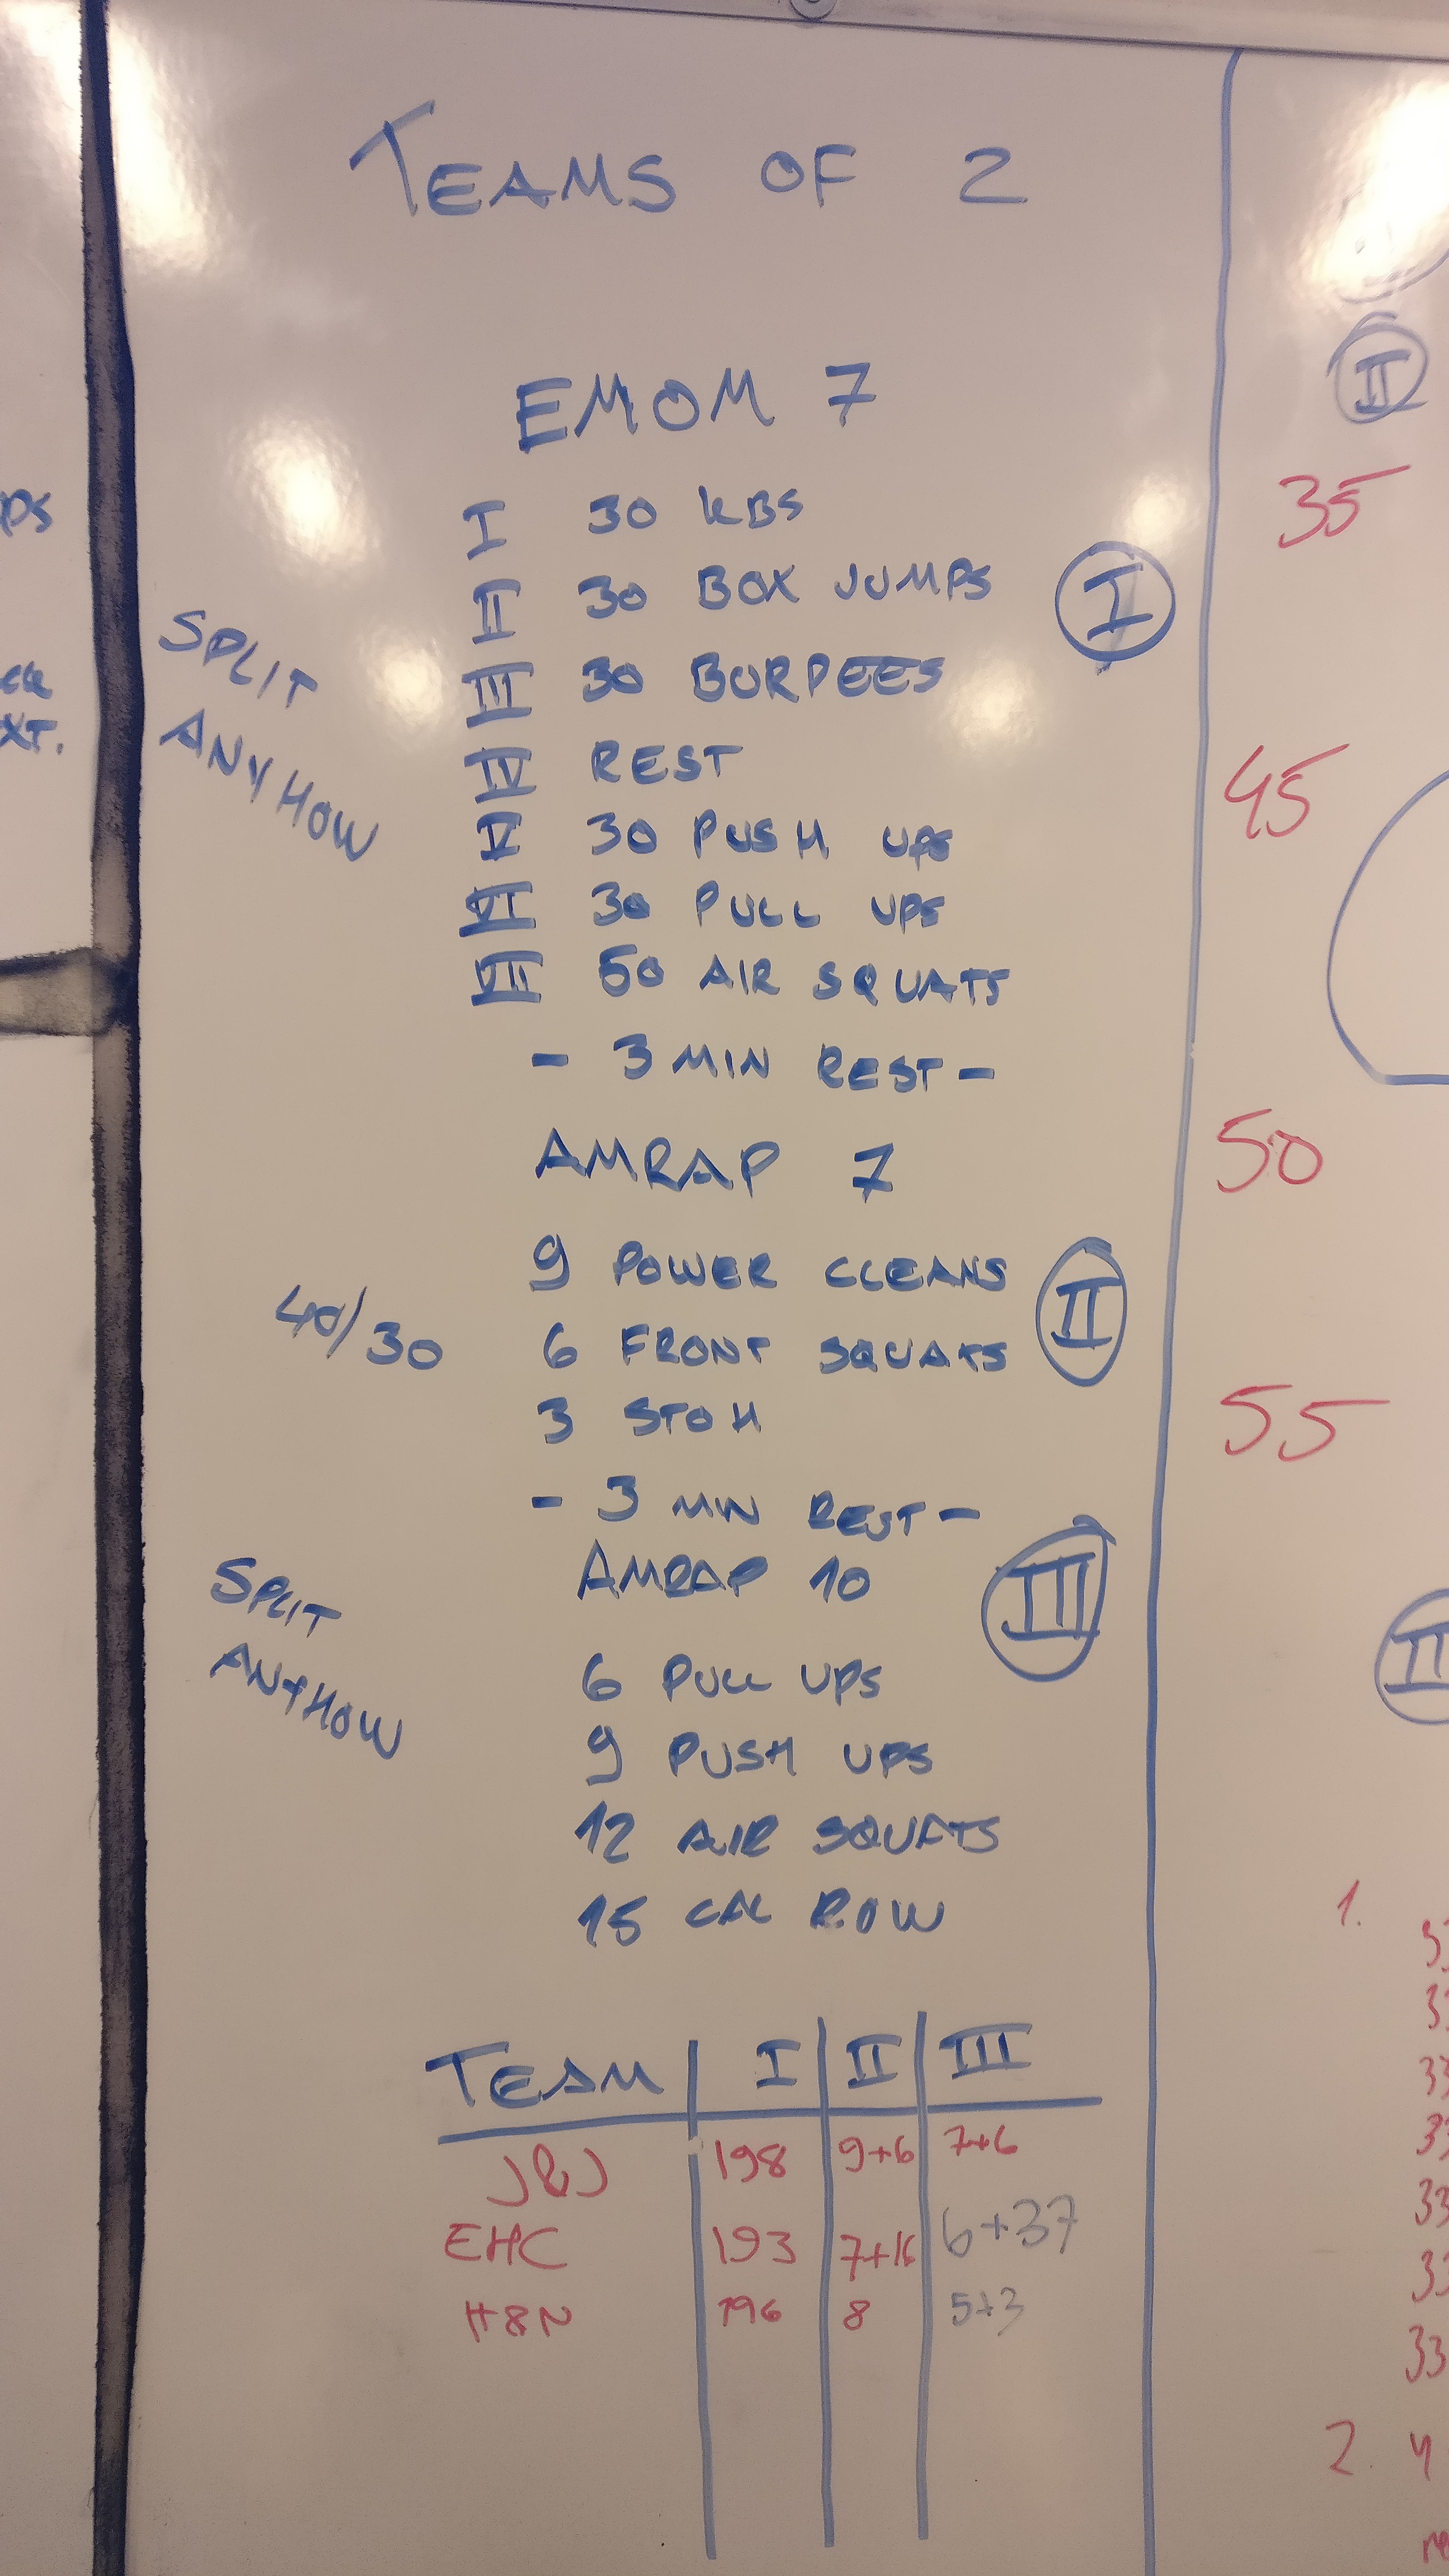 TEAMS OF 2
EMOM 7
I 30 KBS
II 30 BOX JUMPS
III 30 BURPEES
I
SPLIT
ANYHOW
IV REST
V 30 PUSH UPS
VI 30 PULL UPS
VII 50 AIR SQUATS
- 3 MIN REST -
AMRAP 7
9 POWER CLEANS
40/30 6 FRONT SQUATS
II
3 STOH
- 3 MIN REST -
AMRAP 10
III
SPLIT
ANYHOW
6 PULL UPS
9 PUSH UPS
12 AIR SQUATS
15 CAL ROW
TEAM I II III
J&J 198 9+6 7+6
EHC 193 7+16 6+37
H&N 196 8 5+3
II
35
45
50
55
1.
33
33
33
33
33
2. 4